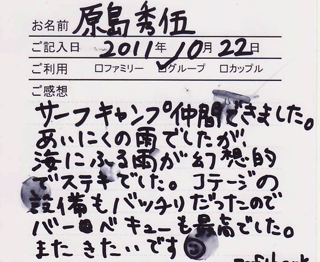 お名前 原島秀伍
ご記入日 2011年10月22日
ご利用 □ファミリー ☑グループ □カップル
ご感想
サーフキャンプ仲間できました。
あいにくの雨でしたが、
海にふる雨が幻想的
でステキでした。コテージの
設備もバッチリだったので
バーベキューも最高でした。
またきたいです